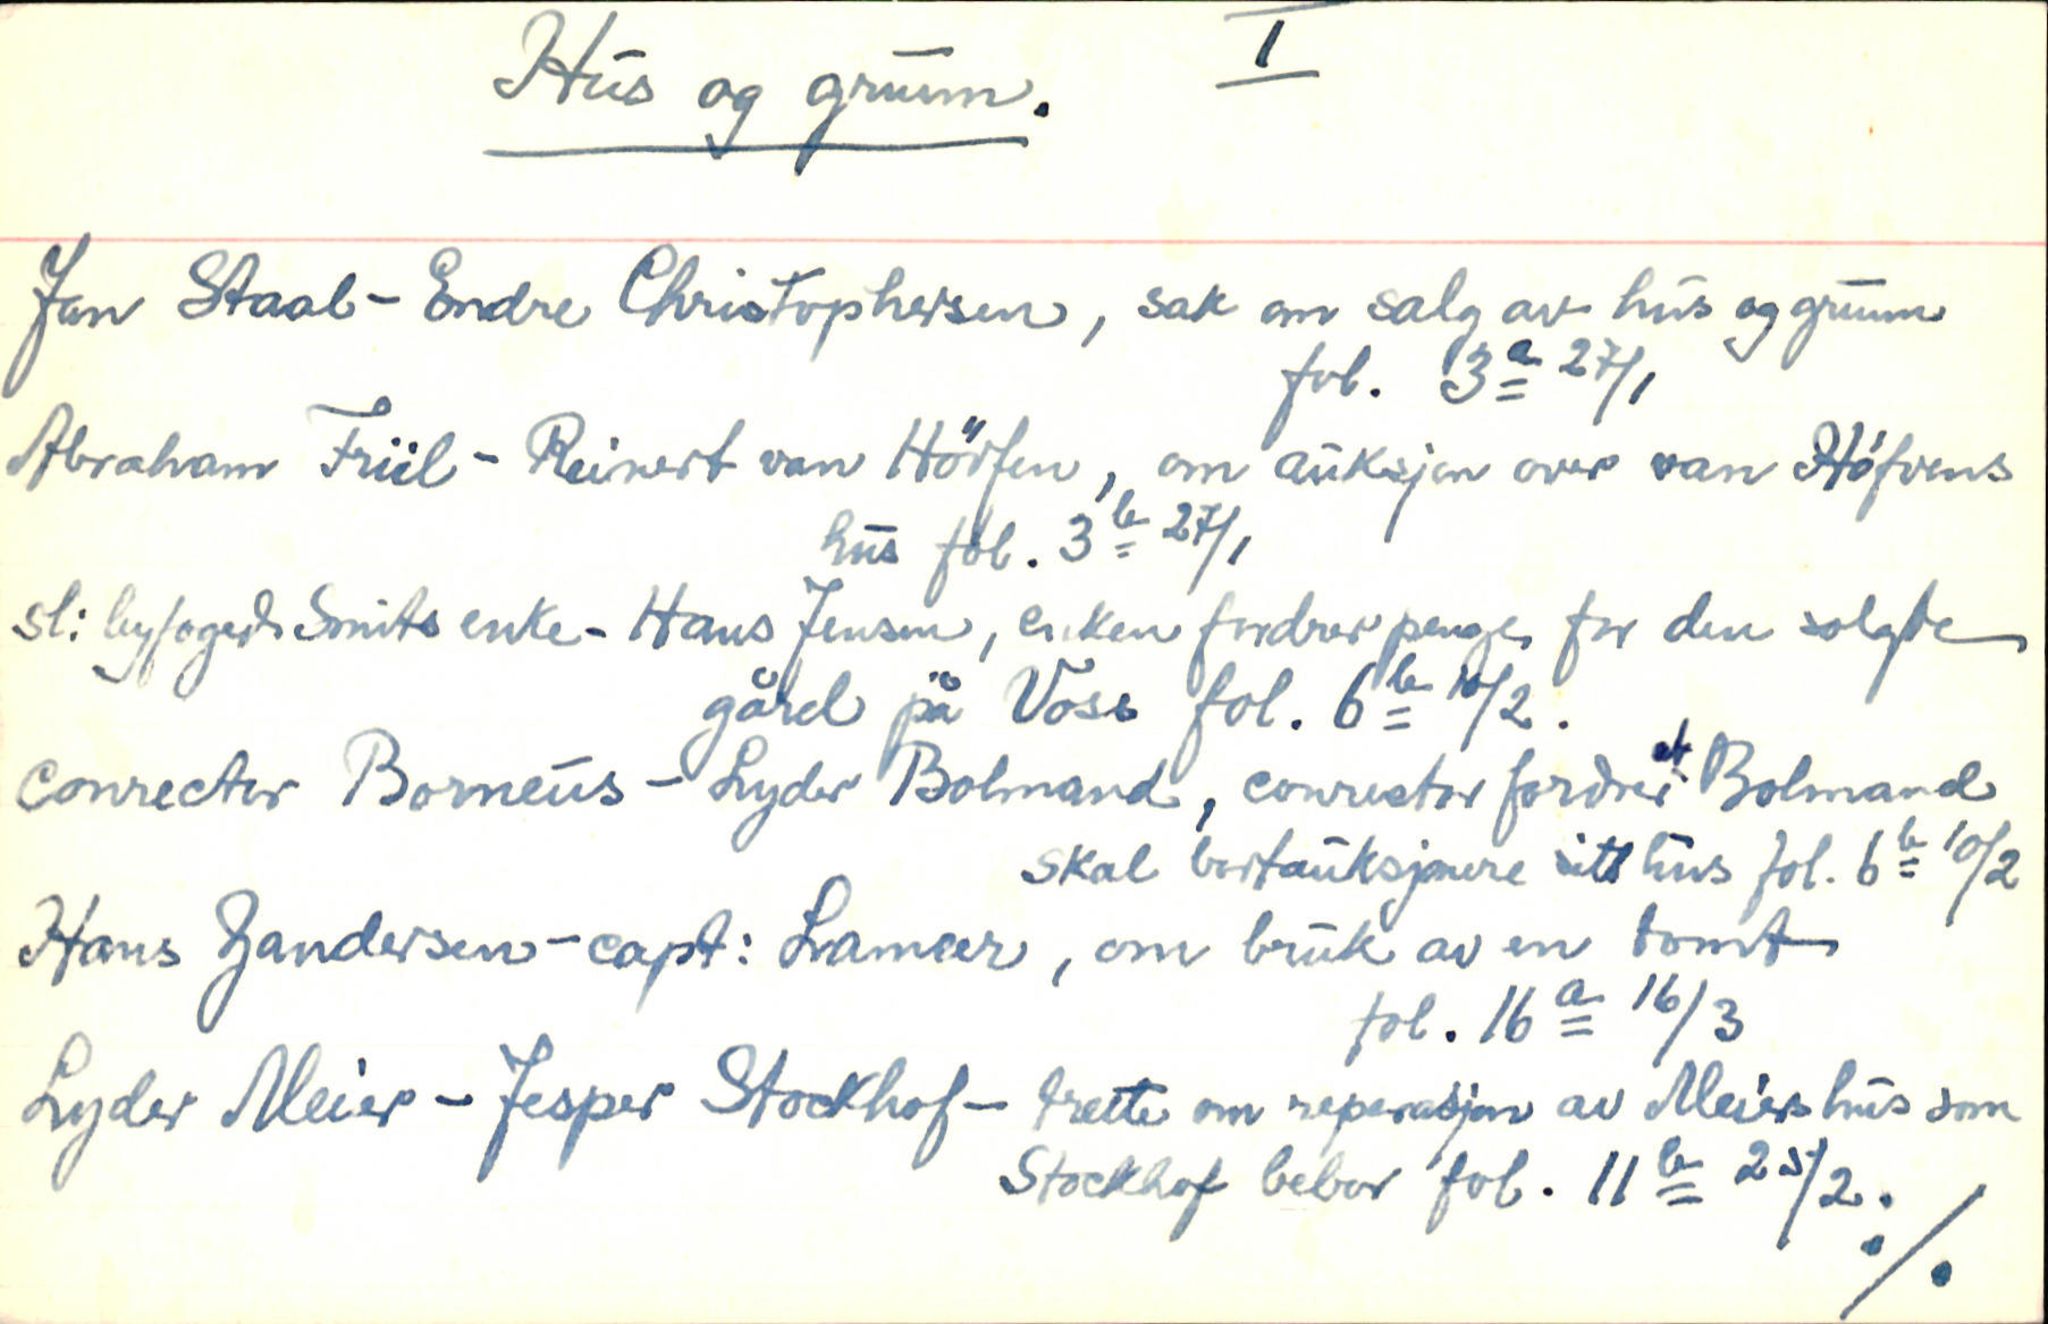 Hus og grunn. I
Jan Staal - Endre Christophersen, sak om salg av hus og grunn
fol. 3a 27/1
Abraham Friil - Reinert van Hörfen, om auksjon over van Höfvens
hus fol. 3b 27/1
sl: byfogeds Smits enke - Hans Jensen, enken fordrer penge for den solgte
gård på Voss fol. 6b 10/2.
conrector Borneus - Lyder Bolmand, conrector fordrer at Bolmand
skal bortauksjonere sitt hus fol. 6b 10/2
Hans Zandersen - capt: Lamcer, om bruk av en tomt
fol. 16a 16/3
Lyder Meier - Jesper Stockhof - trette om reperasjon av Meiers hus som
Stockhof bebor fol. 11b 25/2.
./.